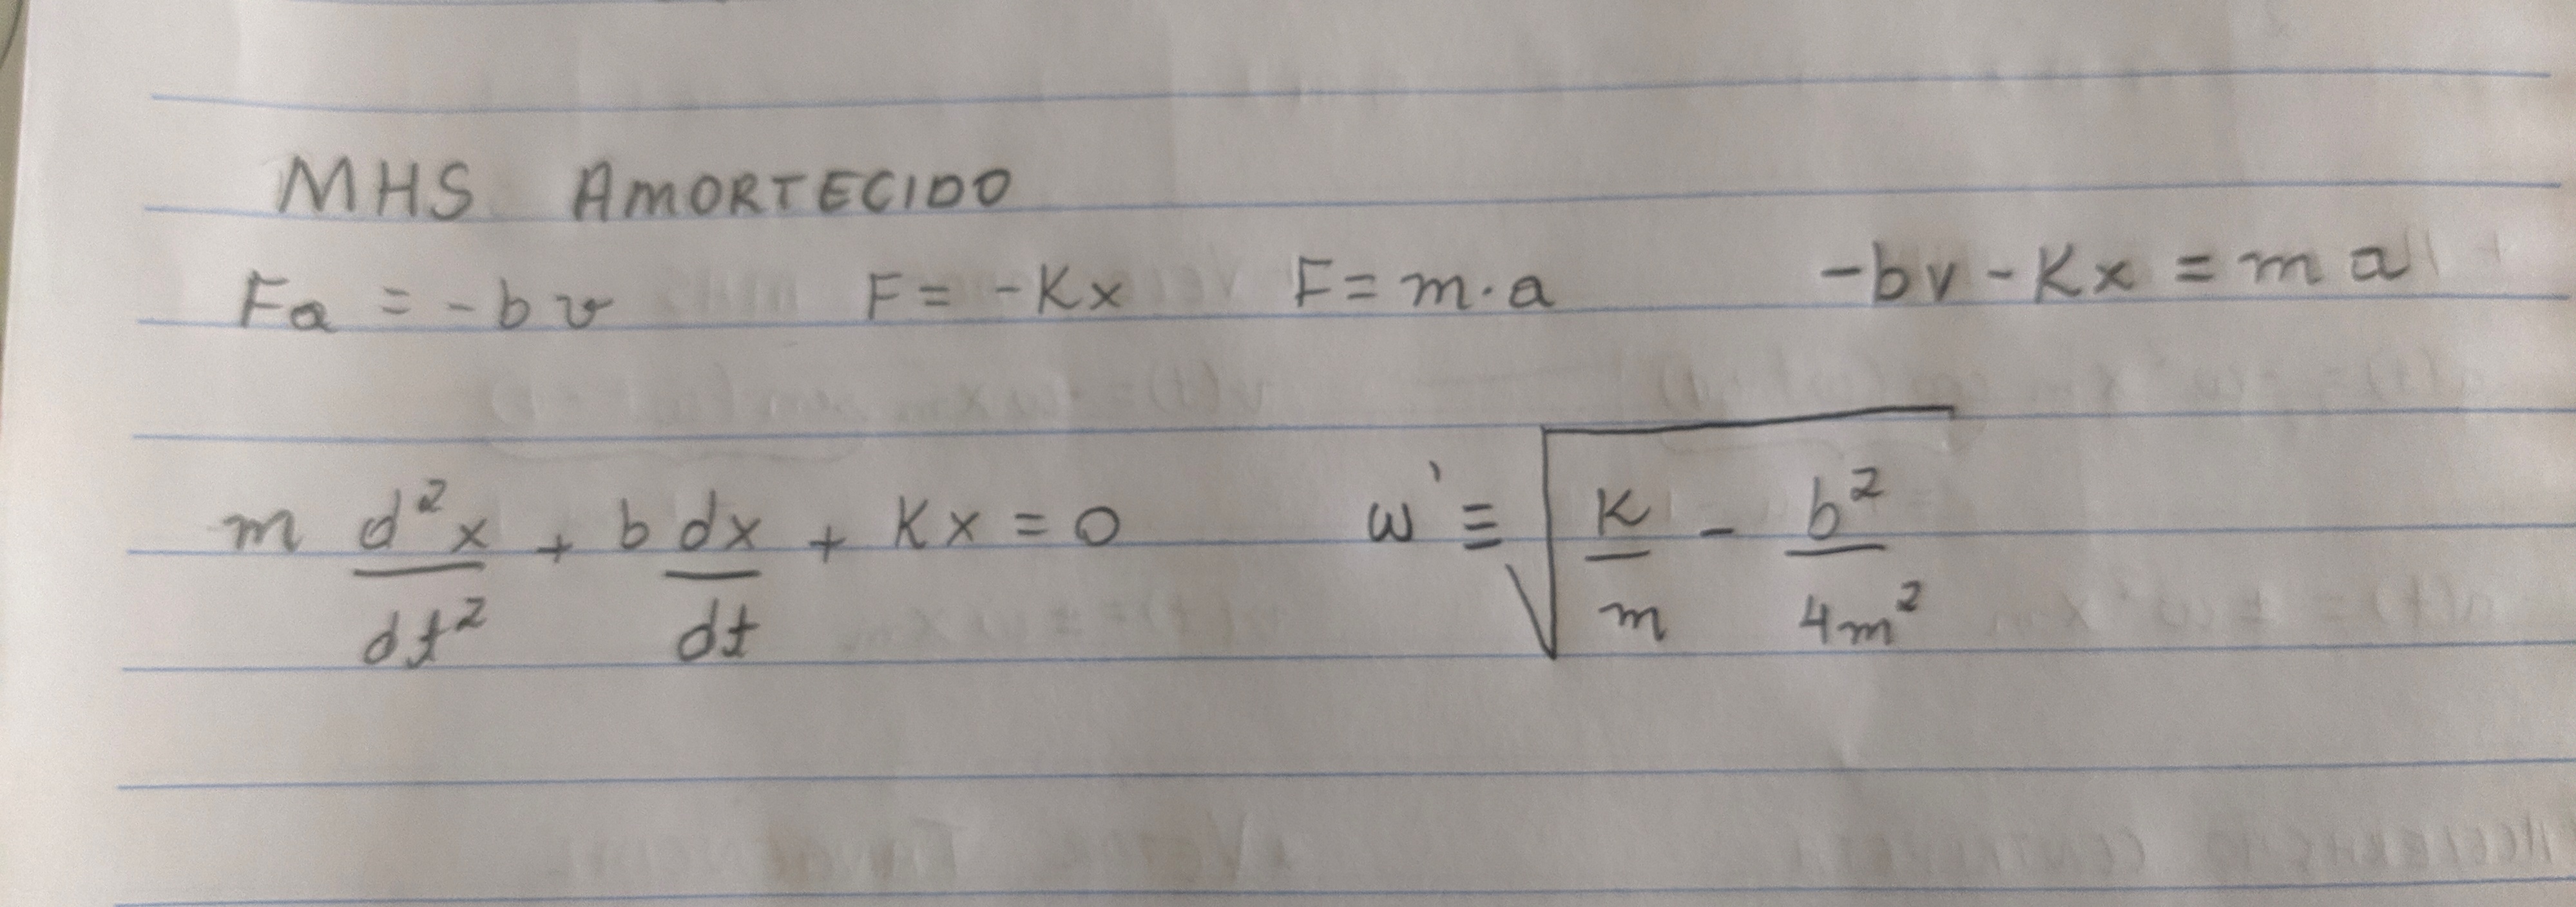 MHS AMORTECIDO
Fa = -bv F = -Kx F = m·a -bv - Kx = ma
m d²x/dt² + b dx/dt + Kx = 0 ω' ≡ √(K/m - b²/4m²)